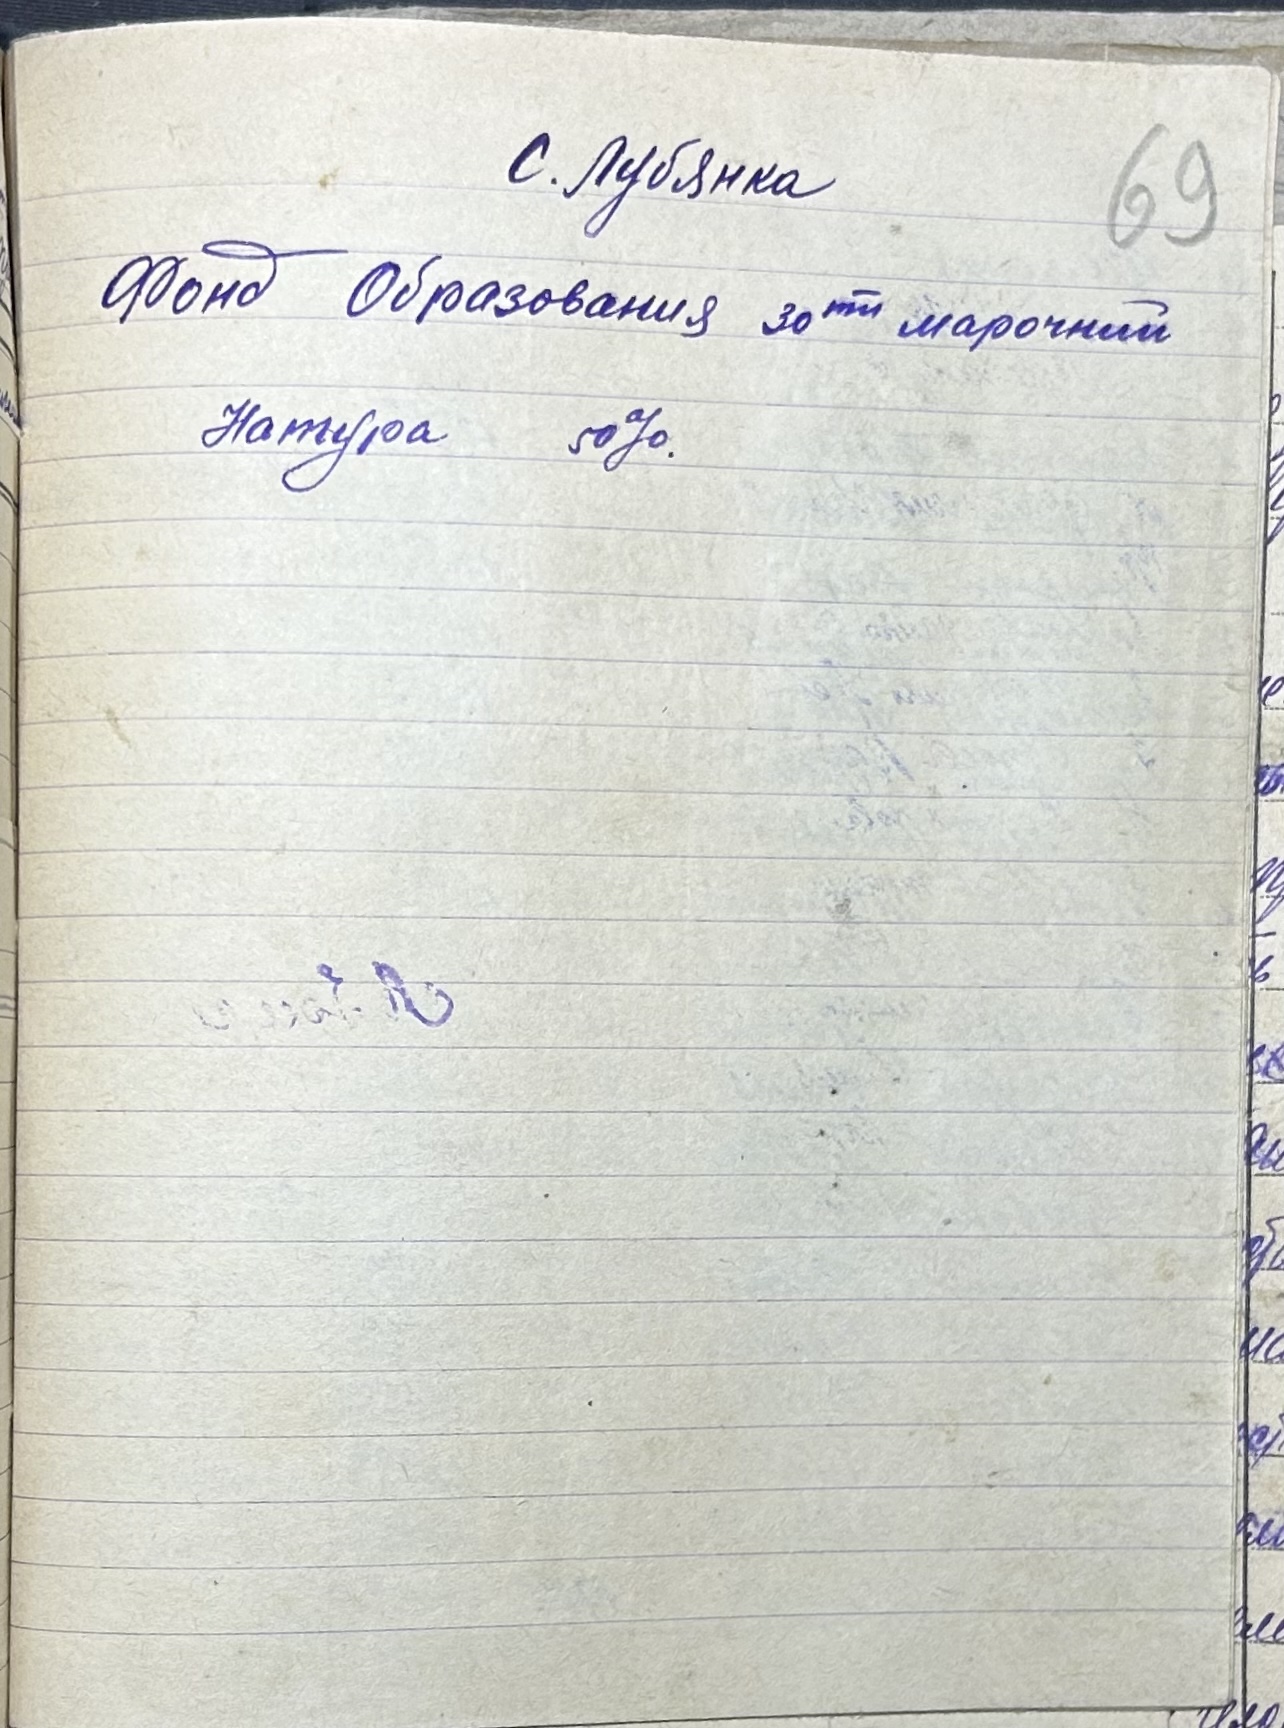 С. Лубянка
69
Фонд Образования 30ти марочний
Натура 50%.